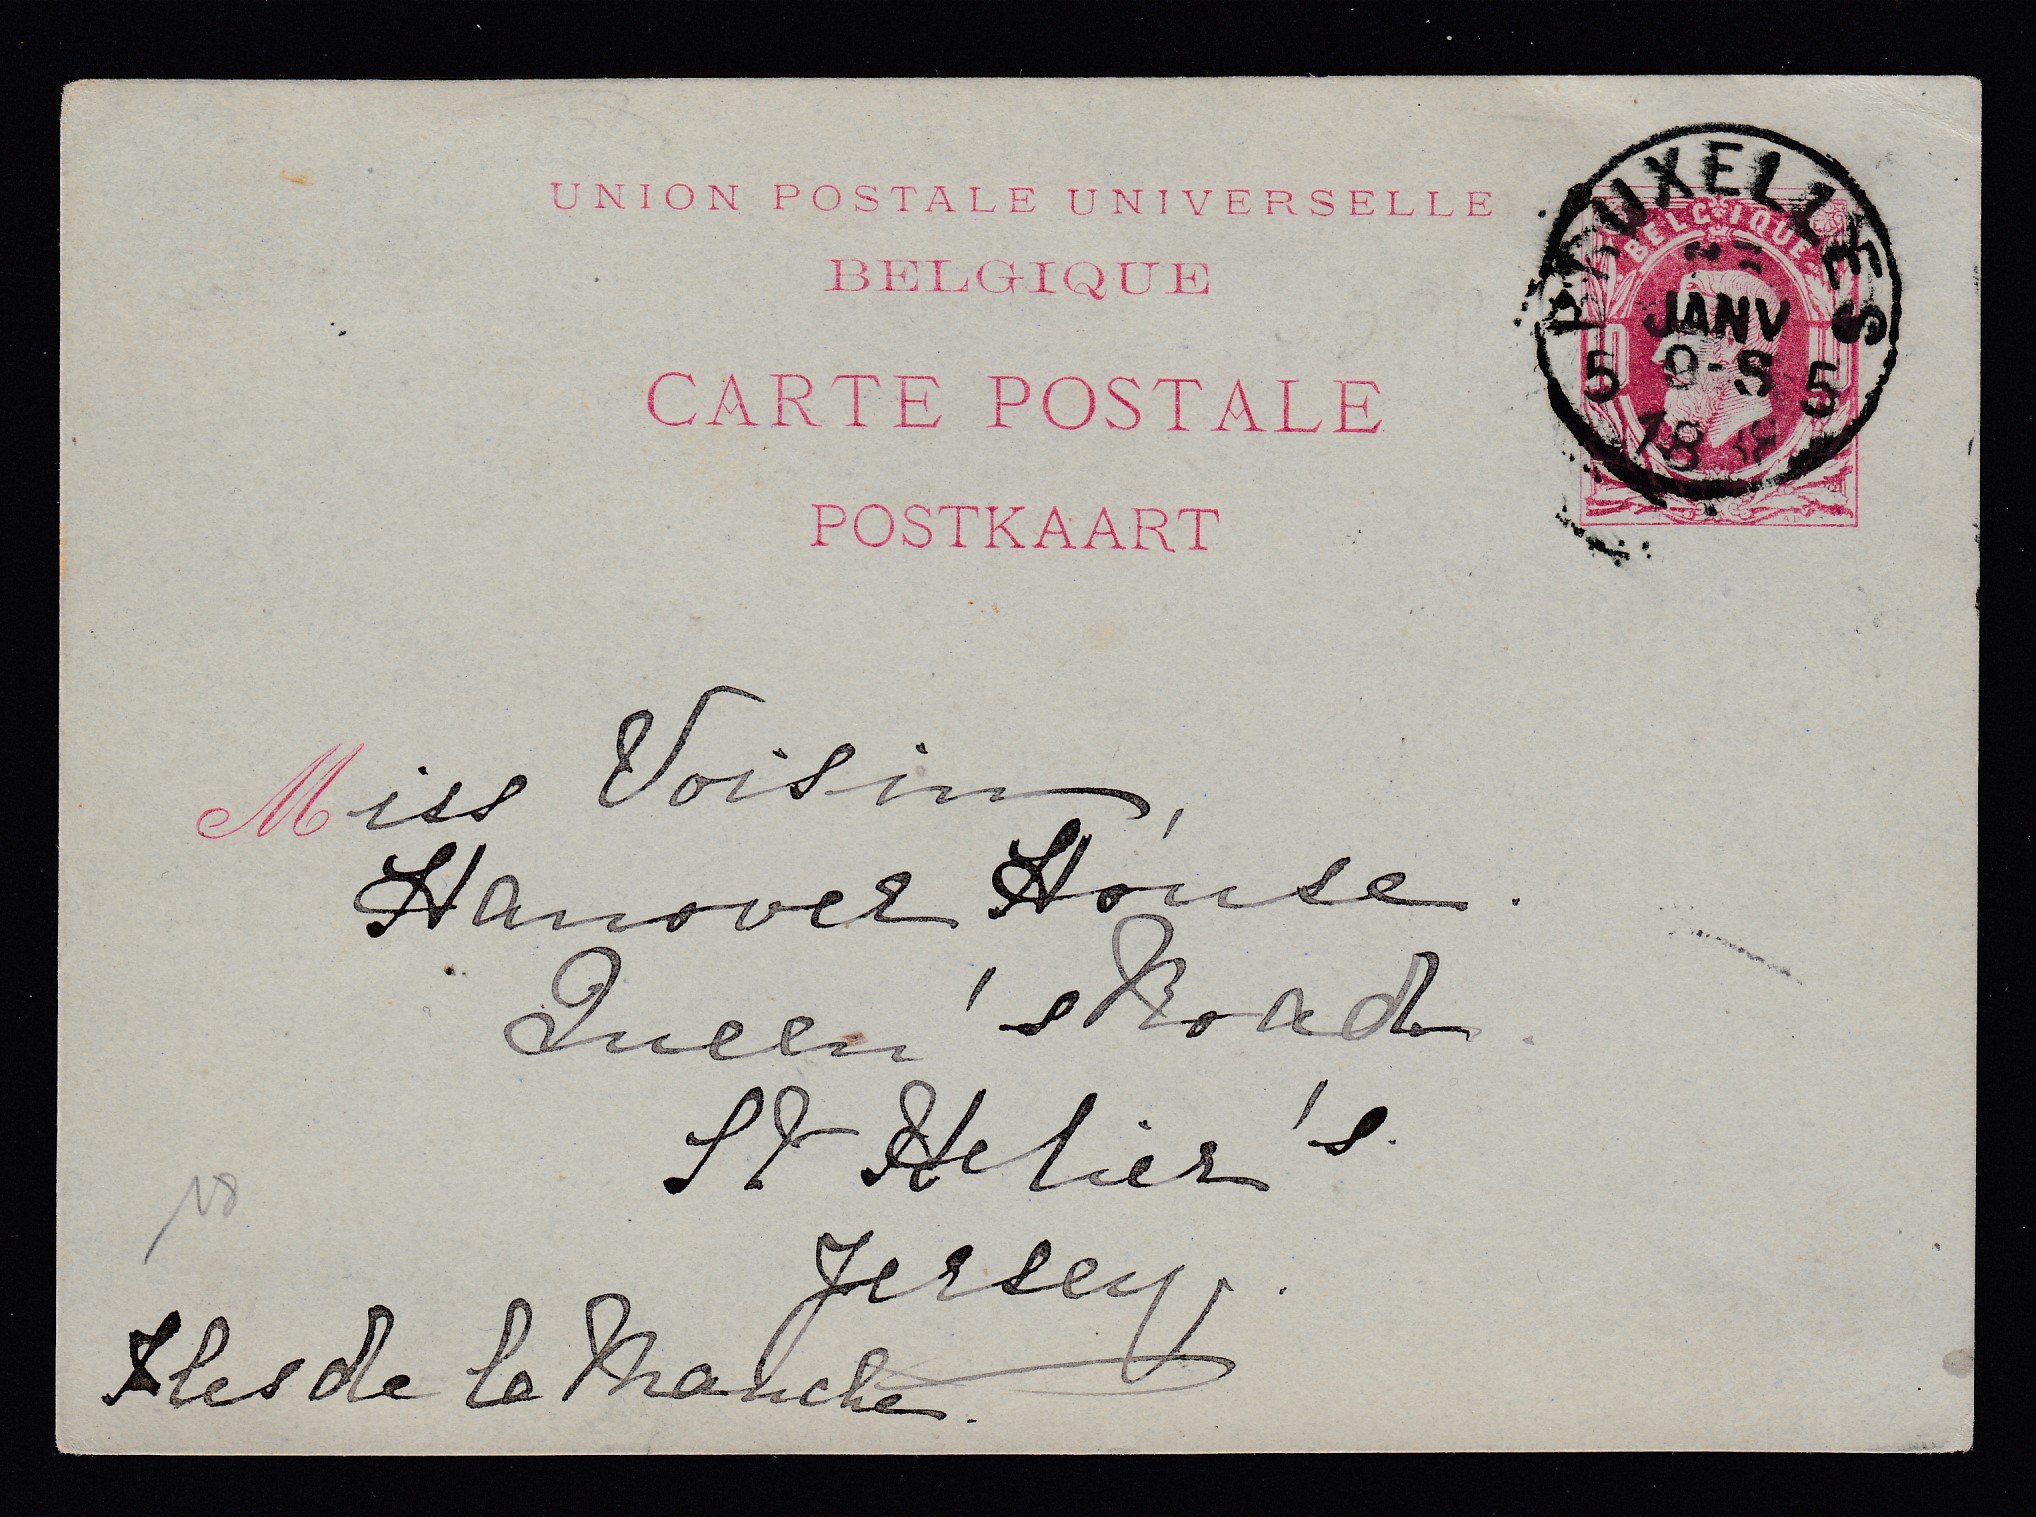 UNION POSTALE UNIVERSELLE
BELGIQUE
CARTE POSTALE
POSTKAART
BRUXELLES
JANV
5 9-S 5
BELGIQUE
Miss Voisin,
Hanover House.
Queen's Road.
St Helier's.
Jersey.
Iles de la Manche.